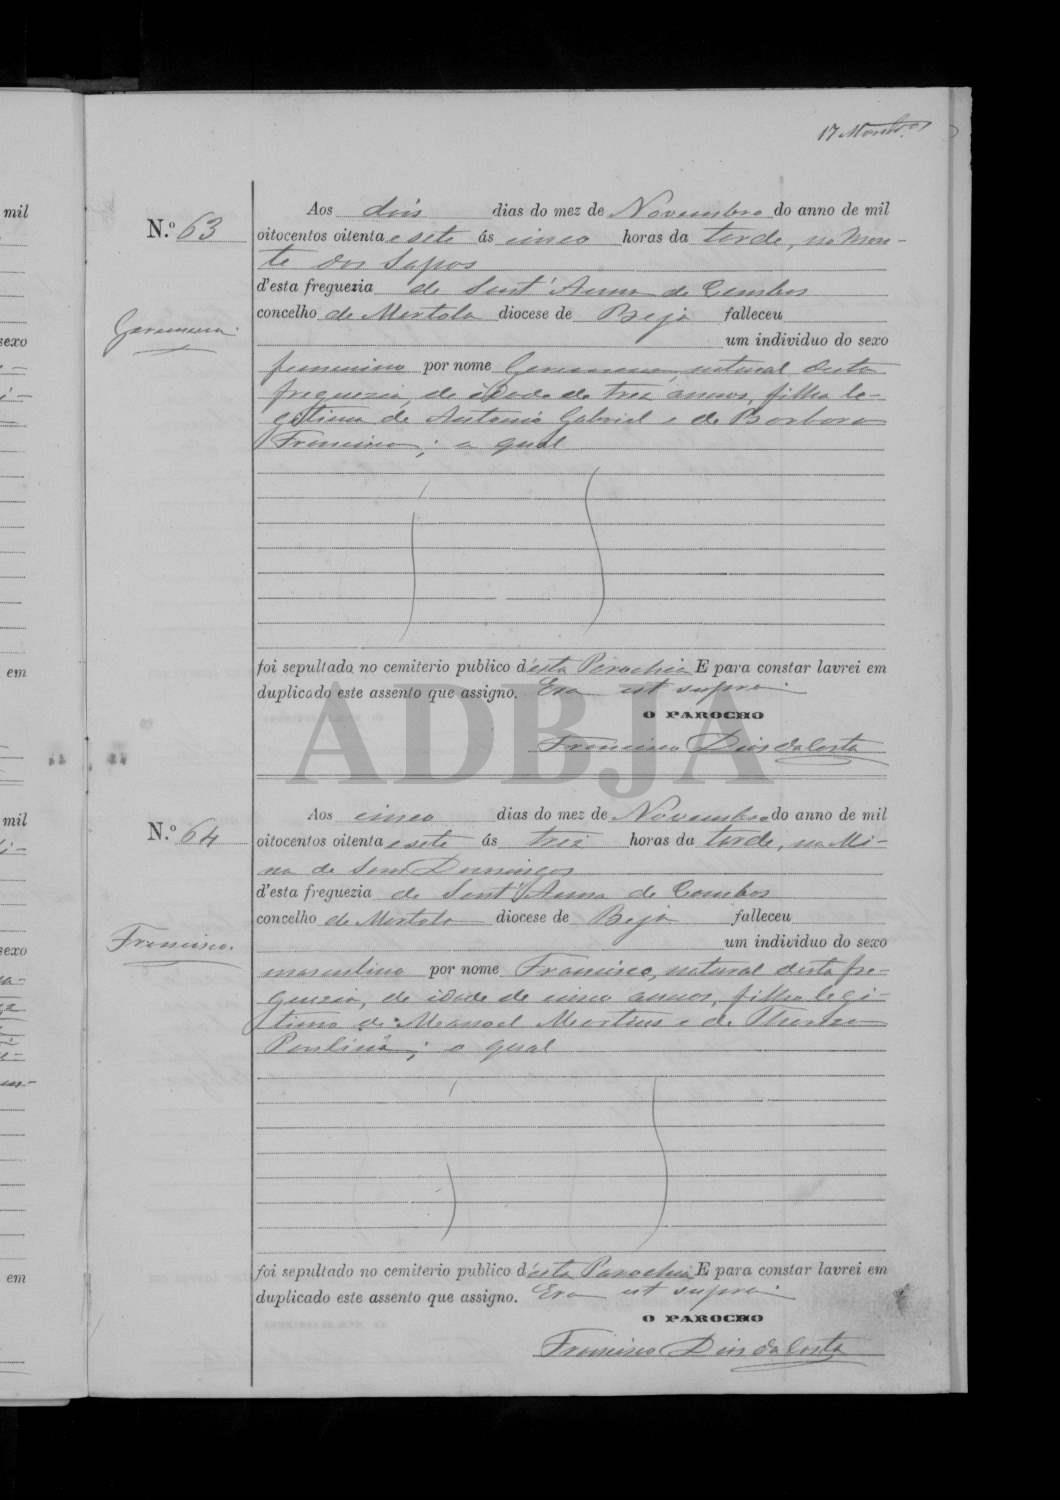 17
N.º 63
Aos dois dias do mez de Novembro do anno de mil
oitocentos oitenta e sete ás cinco horas da tarde, no Mon-
te dos Sapos
d'esta freguezia de Sant'Anna de Cambas
concelho de Mertola diocese de Beja falleceu
um individuo do sexo
feminino por nome Germana, natural desta
freguezia, de idade de trez annos, filha le-
gitima de Antonio Gabriel e de Barbara
Francisca; a qual
Germana.
foi sepultado no cemiterio publico d'esta Parochia E para constar lavrei em
duplicado este assento que assigno. Era ut supra
O PAROCHO
Francisco Dias da Costa
N.º 64
Aos cinco dias do mez de Novembro do anno de mil
oitocentos oitenta e sete ás trez horas da tarde, na Mi-
na de Sam Domingos
d'esta freguezia de Sant'Anna de Cambas
concelho de Mertola diocese de Beja falleceu
um individuo do sexo
Francisco.
masculino por nome Francisco, natural desta fre-
guezia, de idade de cinco annos, filho legi-
timo de Manoel Martins e de Thereza
Paulina; o qual
foi sepultado no cemiterio publico d'esta Parochia E para constar lavrei em
duplicado este assento que assigno. Era ut supra
O PAROCHO
Francisco Dias da Costa
mil
sexo
em
mil
sexo
em
ADBJA